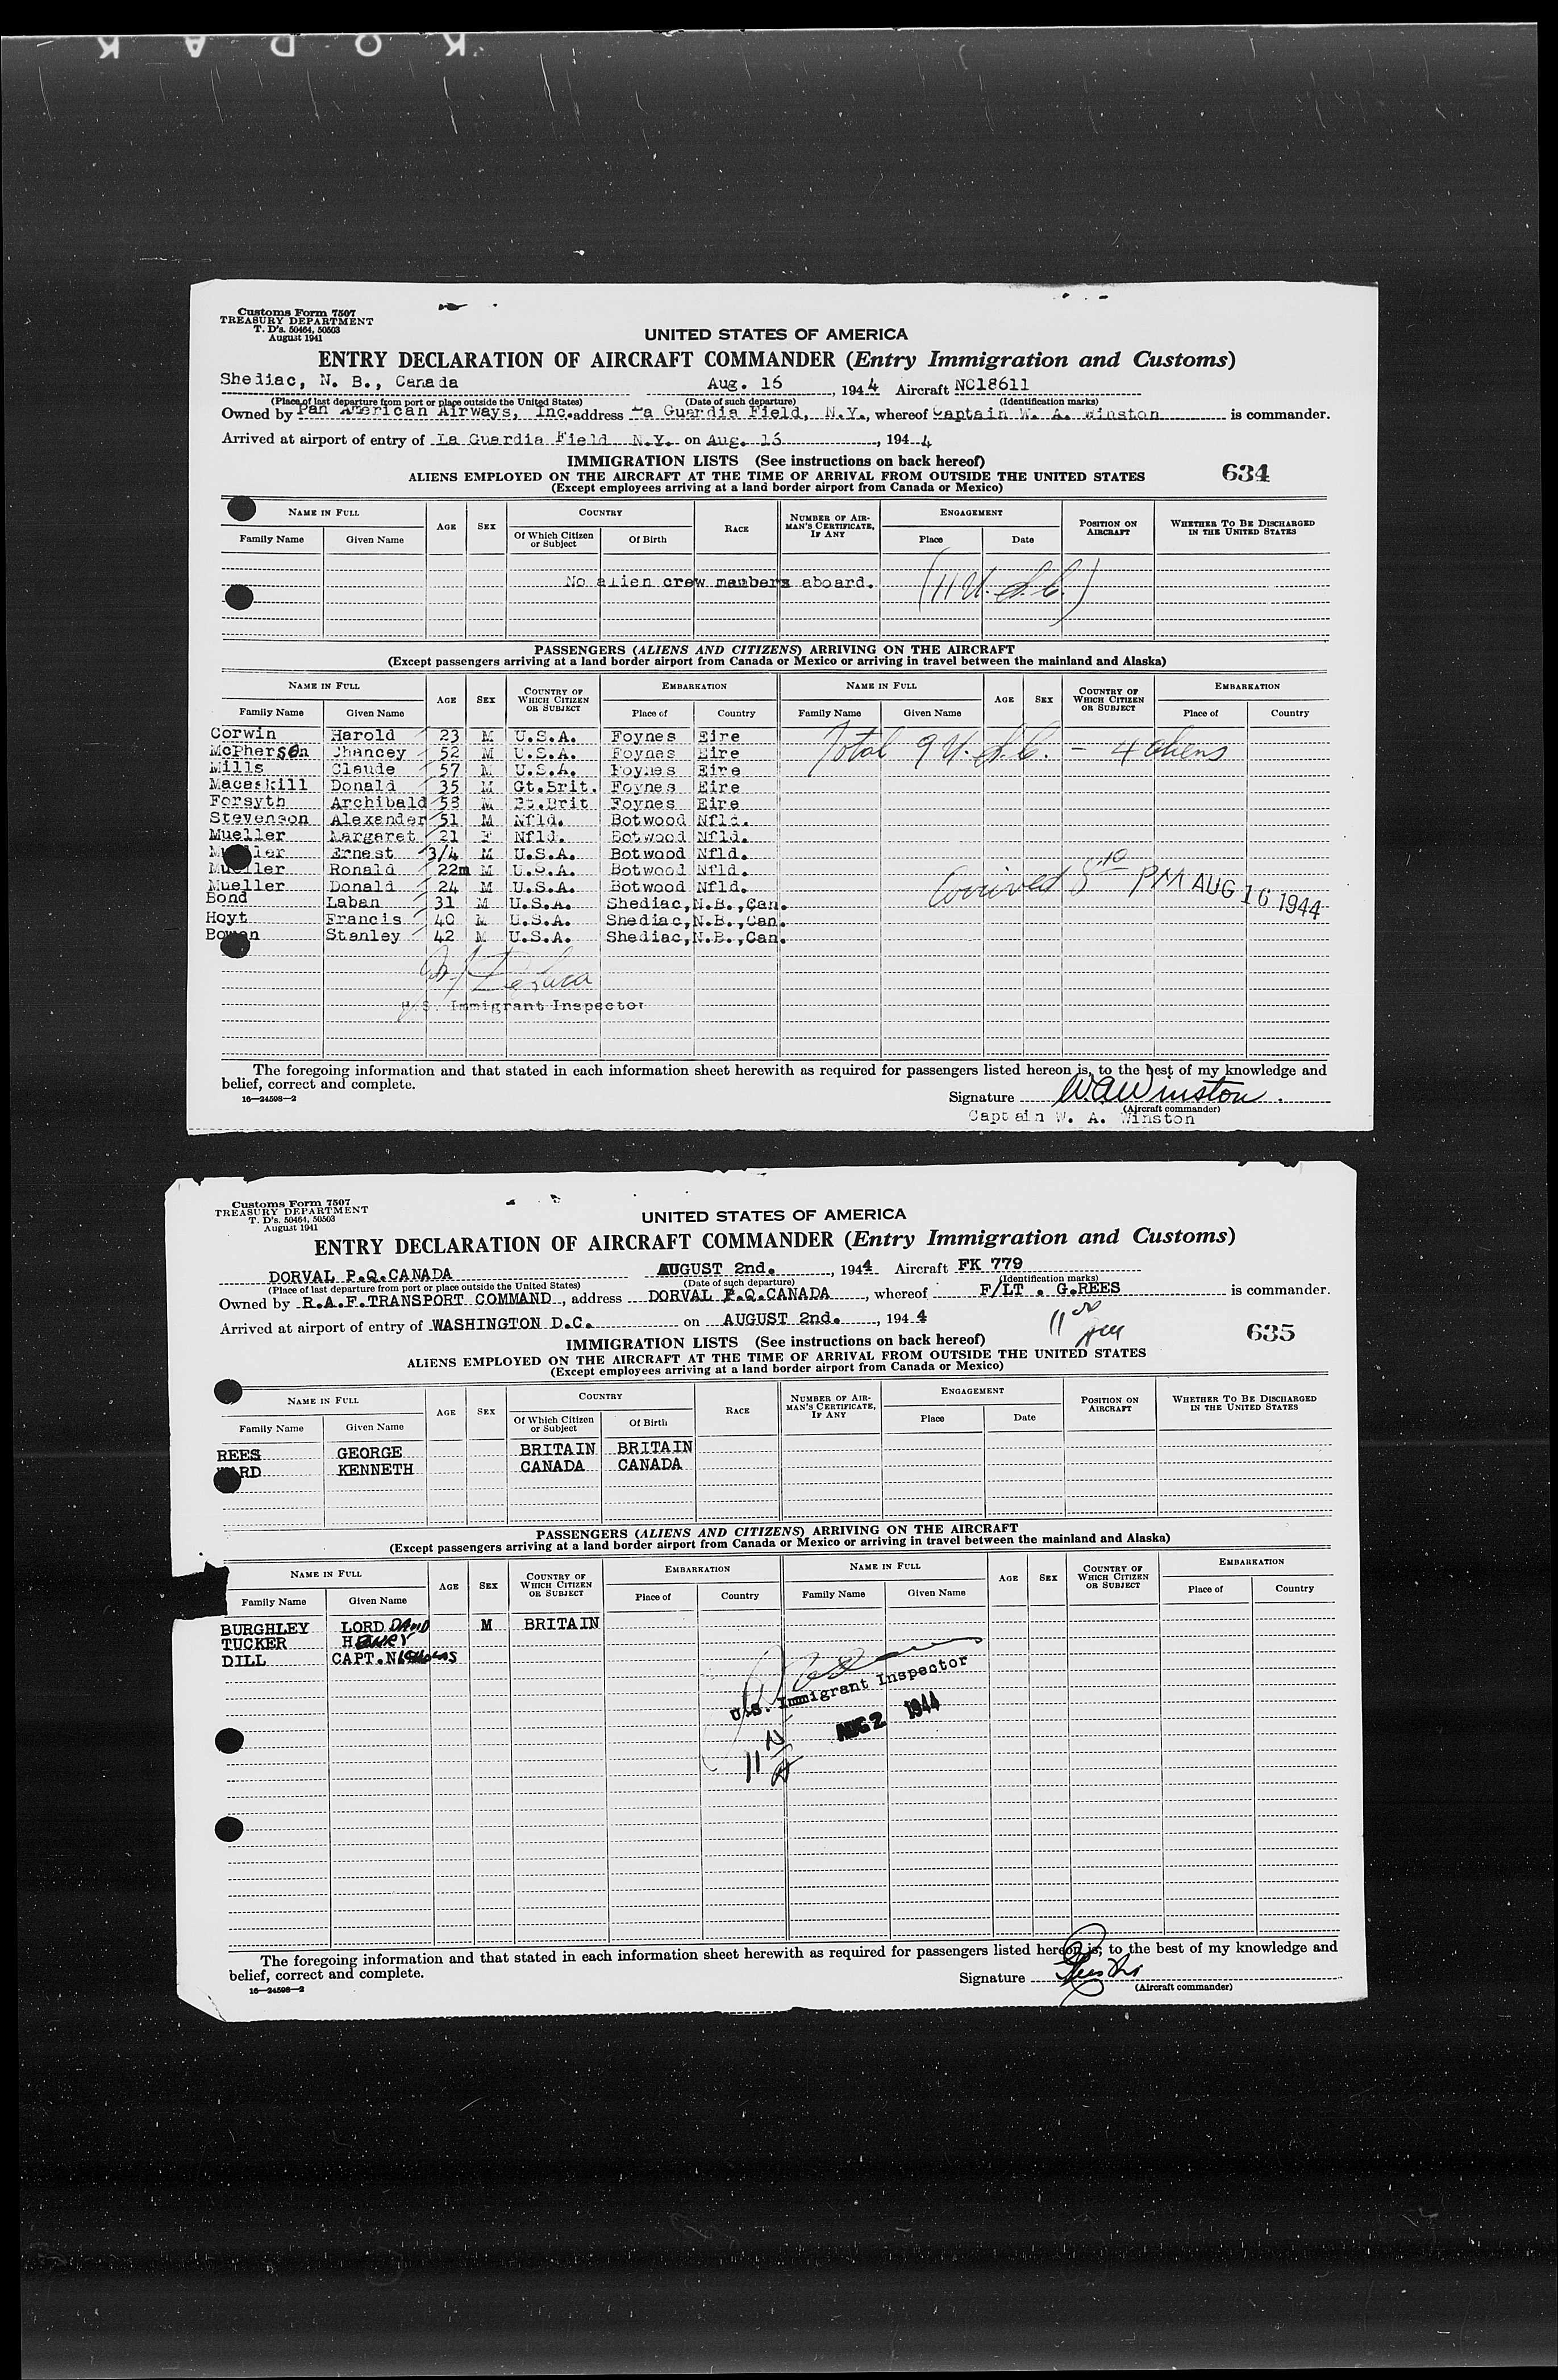 KODAK
Customs Form 7507
TREASURY DEPARTMENT
T. D's. 50464, 50503
August 1941
UNITED STATES OF AMERICA
ENTRY DECLARATION OF AIRCRAFT COMMANDER (Entry Immigration and Customs)
Shediac, N. B., Canada Aug. 16, 1944 Aircraft NC18611
(Place of last departure from port or place outside the United States) (Date of such departure) (Identification marks)
Owned by Pan American Airways, Inc. address La Guardia Field, N.Y., whereof Captain W. A. Winston is commander.
Arrived at airport of entry of La Guardia Field N.Y. on Aug. 16, 1944
IMMIGRATION LISTS (See instructions on back hereof)
634
ALIENS EMPLOYED ON THE AIRCRAFT AT THE TIME OF ARRIVAL FROM OUTSIDE THE UNITED STATES
(Except employees arriving at a land border airport from Canada or Mexico)
NAME IN FULL AGE SEX COUNTRY RACE NUMBER OF AIRMAN'S CERTIFICATE, IF ANY ENGAGEMENT POSITION ON AIRCRAFT WHETHER TO BE DISCHARGED IN THE UNITED STATES
Family Name Given Name Of Which Citizen or Subject Of Birth Place Date
No alien crew members aboard. (11 U.S.C.)
PASSENGERS (ALIENS AND CITIZENS) ARRIVING ON THE AIRCRAFT
(Except passengers arriving at a land border airport from Canada or Mexico or arriving in travel between the mainland and Alaska)
NAME IN FULL AGE SEX COUNTRY OF WHICH CITIZEN OR SUBJECT EMBARKATION NAME IN FULL AGE SEX COUNTRY OF WHICH CITIZEN OR SUBJECT EMBARKATION
Family Name Given Name Place of Country Family Name Given Name Place of Country
Corwin Harold 23 M U.S.A. Foynes Eire
McPherson Chancey 52 M U.S.A. Foynes Eire Total 9 U.S.C. - 4 aliens
Mills Claude 57 M U.S.A. Foynes Eire
Macaskill Donald 35 M Gt.Brit. Foynes Eire
Forsyth Archibald 53 M Gt.Brit Foynes Eire
Stevenson Alexander 51 M Nfld. Botwood Nfld.
Mueller Margaret 21 F Nfld. Botwood Nfld.
Mueller Ernest 3/4 M U.S.A. Botwood Nfld.
Mueller Ronald 22m M U.S.A. Botwood Nfld.
Mueller Donald 24 M U.S.A. Botwood Nfld. Arrived 8:10 PM AUG 16 1944
Bond Laban 31 M U.S.A. Shediac, N.B., Can.
Hoyt Francis 40 M U.S.A. Shediac, N.B., Can.
Bowan Stanley 42 M U.S.A. Shediac, N.B., Can.
U.S. Immigrant Inspector
The foregoing information and that stated in each information sheet herewith as required for passengers listed hereon is, to the best of my knowledge and
belief, correct and complete.
16—24598-2
Signature W.A.Winston
(Aircraft commander)
Captain W. A. Winston
Customs Form 7507
TREASURY DEPARTMENT
T. D's. 50464, 50503
August 1941
UNITED STATES OF AMERICA
ENTRY DECLARATION OF AIRCRAFT COMMANDER (Entry Immigration and Customs)
DORVAL P.Q.CANADA AUGUST 2nd., 1944 Aircraft FK 779
(Place of last departure from port or place outside the United States) (Date of such departure) (Identification marks)
Owned by R.A.F.TRANSPORT COMMAND, address DORVAL P.Q.CANADA, whereof F/LT . G.REES is commander.
Arrived at airport of entry of WASHINGTON D.C. on AUGUST 2nd., 1944
11 00
IMMIGRATION LISTS (See instructions on back hereof)
635
ALIENS EMPLOYED ON THE AIRCRAFT AT THE TIME OF ARRIVAL FROM OUTSIDE THE UNITED STATES
(Except employees arriving at a land border airport from Canada or Mexico)
NAME IN FULL AGE SEX COUNTRY RACE NUMBER OF AIRMAN'S CERTIFICATE, IF ANY ENGAGEMENT POSITION ON AIRCRAFT WHETHER TO BE DISCHARGED IN THE UNITED STATES
Family Name Given Name Of Which Citizen or Subject Of Birth Place Date
REES GEORGE BRITAIN BRITAIN
WARD KENNETH CANADA CANADA
PASSENGERS (ALIENS AND CITIZENS) ARRIVING ON THE AIRCRAFT
(Except passengers arriving at a land border airport from Canada or Mexico or arriving in travel between the mainland and Alaska)
NAME IN FULL AGE SEX COUNTRY OF WHICH CITIZEN OR SUBJECT EMBARKATION NAME IN FULL AGE SEX COUNTRY OF WHICH CITIZEN OR SUBJECT EMBARKATION
Family Name Given Name Place of Country Family Name Given Name Place of Country
BURGHLEY LORD DAVID M BRITAIN
TUCKER HENRY
DILL CAPT. NICHOLAS
U.S. Immigrant Inspector
AUG 2 1944
11
The foregoing information and that stated in each information sheet herewith as required for passengers listed hereon is, to the best of my knowledge and
belief, correct and complete.
16—24598-2
Signature
(Aircraft commander)